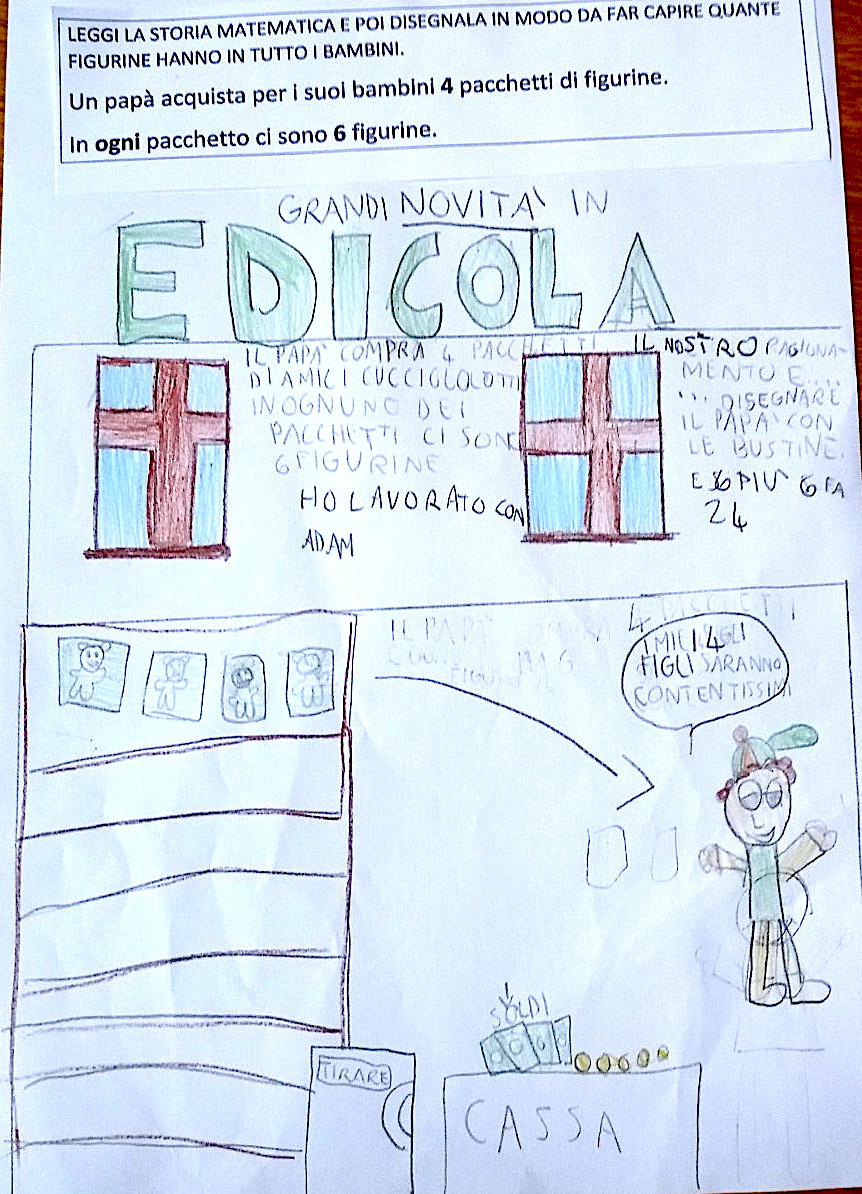 LEGGI LA STORIA MATEMATICA E POI DISEGNALA IN MODO DA FAR CAPIRE QUANTE
FIGURINE HANNO IN TUTTO I BAMBINI.
Un papà acquista per i suoi bambini 4 pacchetti di figurine.
In ogni pacchetto ci sono 6 figurine.
GRANDI NOVITA' IN
EDICOLA
IL PAPA' COMPRA 4 PACCHETTI
DI AMICI CUCCIOLOTTI
IN OGNUNO DEI
PACCHETTI CI SONO
6 FIGURINE
HO LAVORATO CON
ADAM
IL NOSTRO RAGIONA-
MENTO E....
... DISEGNARE
IL PAPA' CON
LE BUSTINE.
E PIU' 6 FA
24
IL PAPA
4 PACCHETTI
I MIEI 4
FIGLI SARANNO
CONTENTISSIMI
SOLDI
TIRARE
CASSA